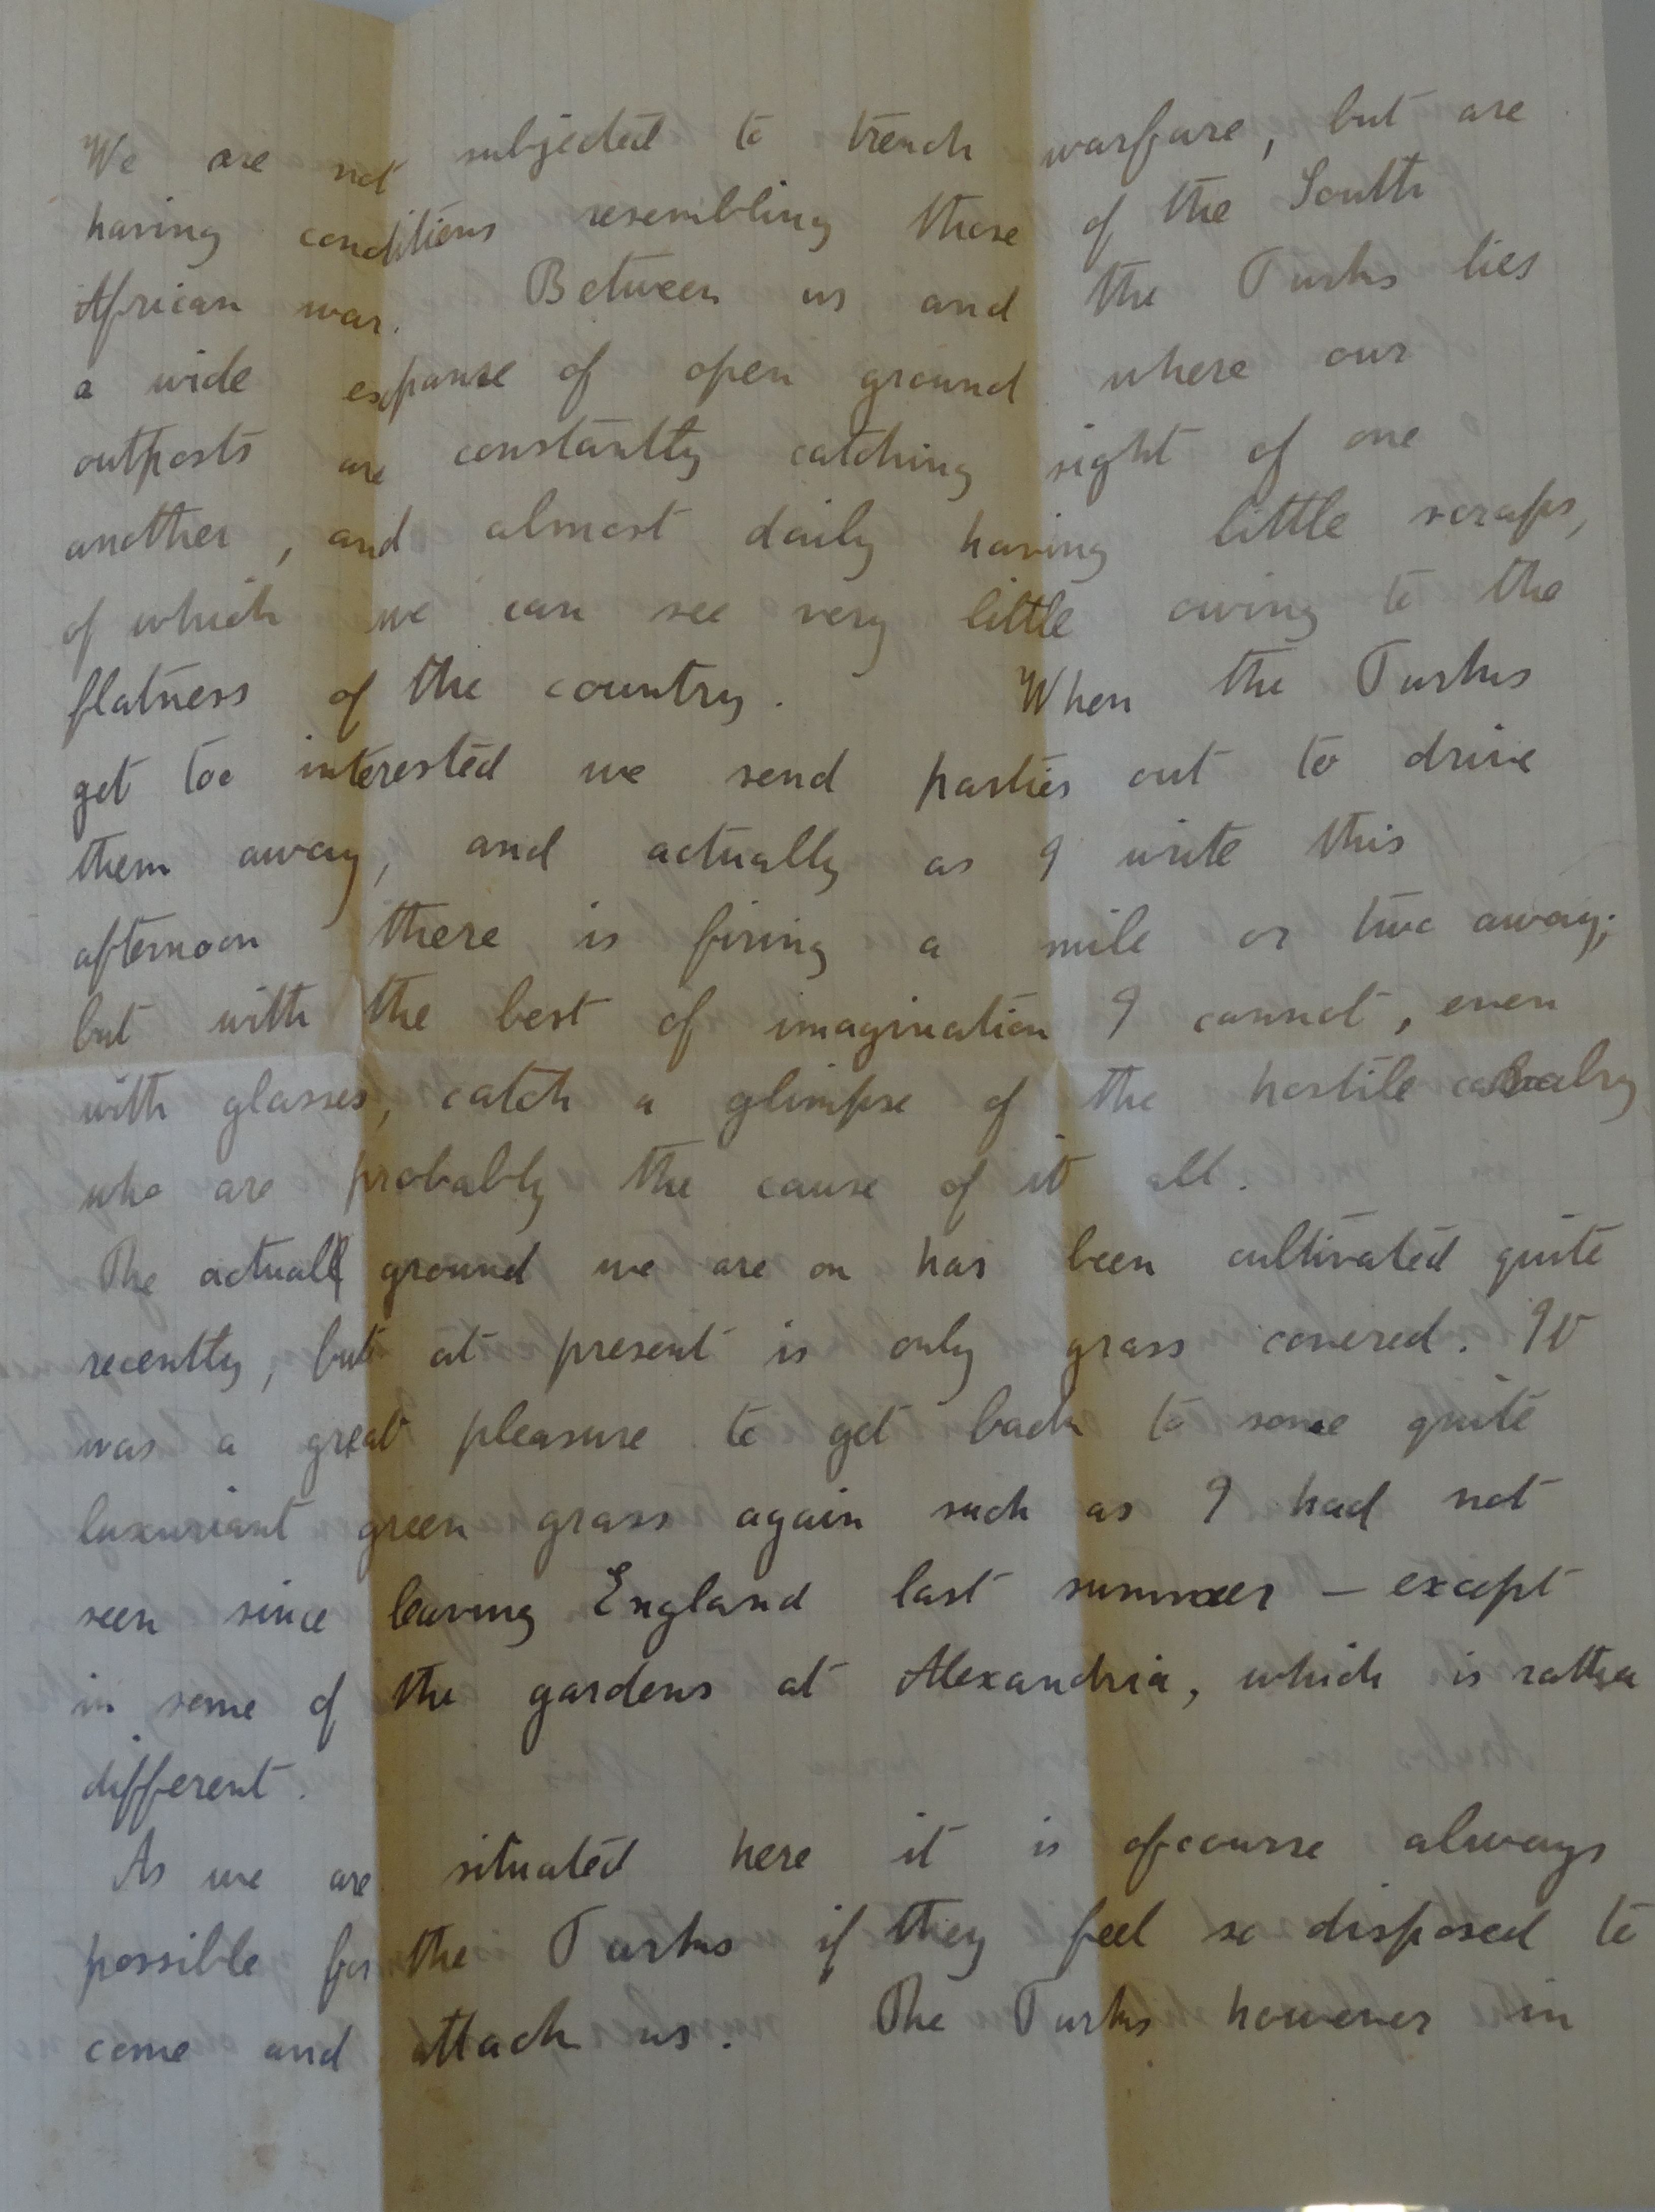 We are not subjected to trench warfare, but are
having conditions resembling those of the South
African war. Between us and the Turks lies
a wide expanse of open ground where our
outposts are constantly catching sight of one
another, and almost daily having little scraps,
of which we can see very little owing to the
flatness of the country. When the Turks
get too interested we send parties out to drive
them away, and actually as I write this
afternoon there is firing a mile or two away;
but with the best of imagination I cannot, even
with glasses, catch a glimpse of the hostile cavalry
who are probably the cause of it all.
The actual ground we are on has been cultivated quite
recently, but at present is only grass covered. It
was a great pleasure to get back to some quite
luxuriant green grass again such as I had not
seen since leaving England last summer – except
in some of the gardens at Alexandria, which is rather
different.
As we are situated here it is ofcourse always
possible for the Turks if they feel so disposed to
come and attack us. The Turks however in